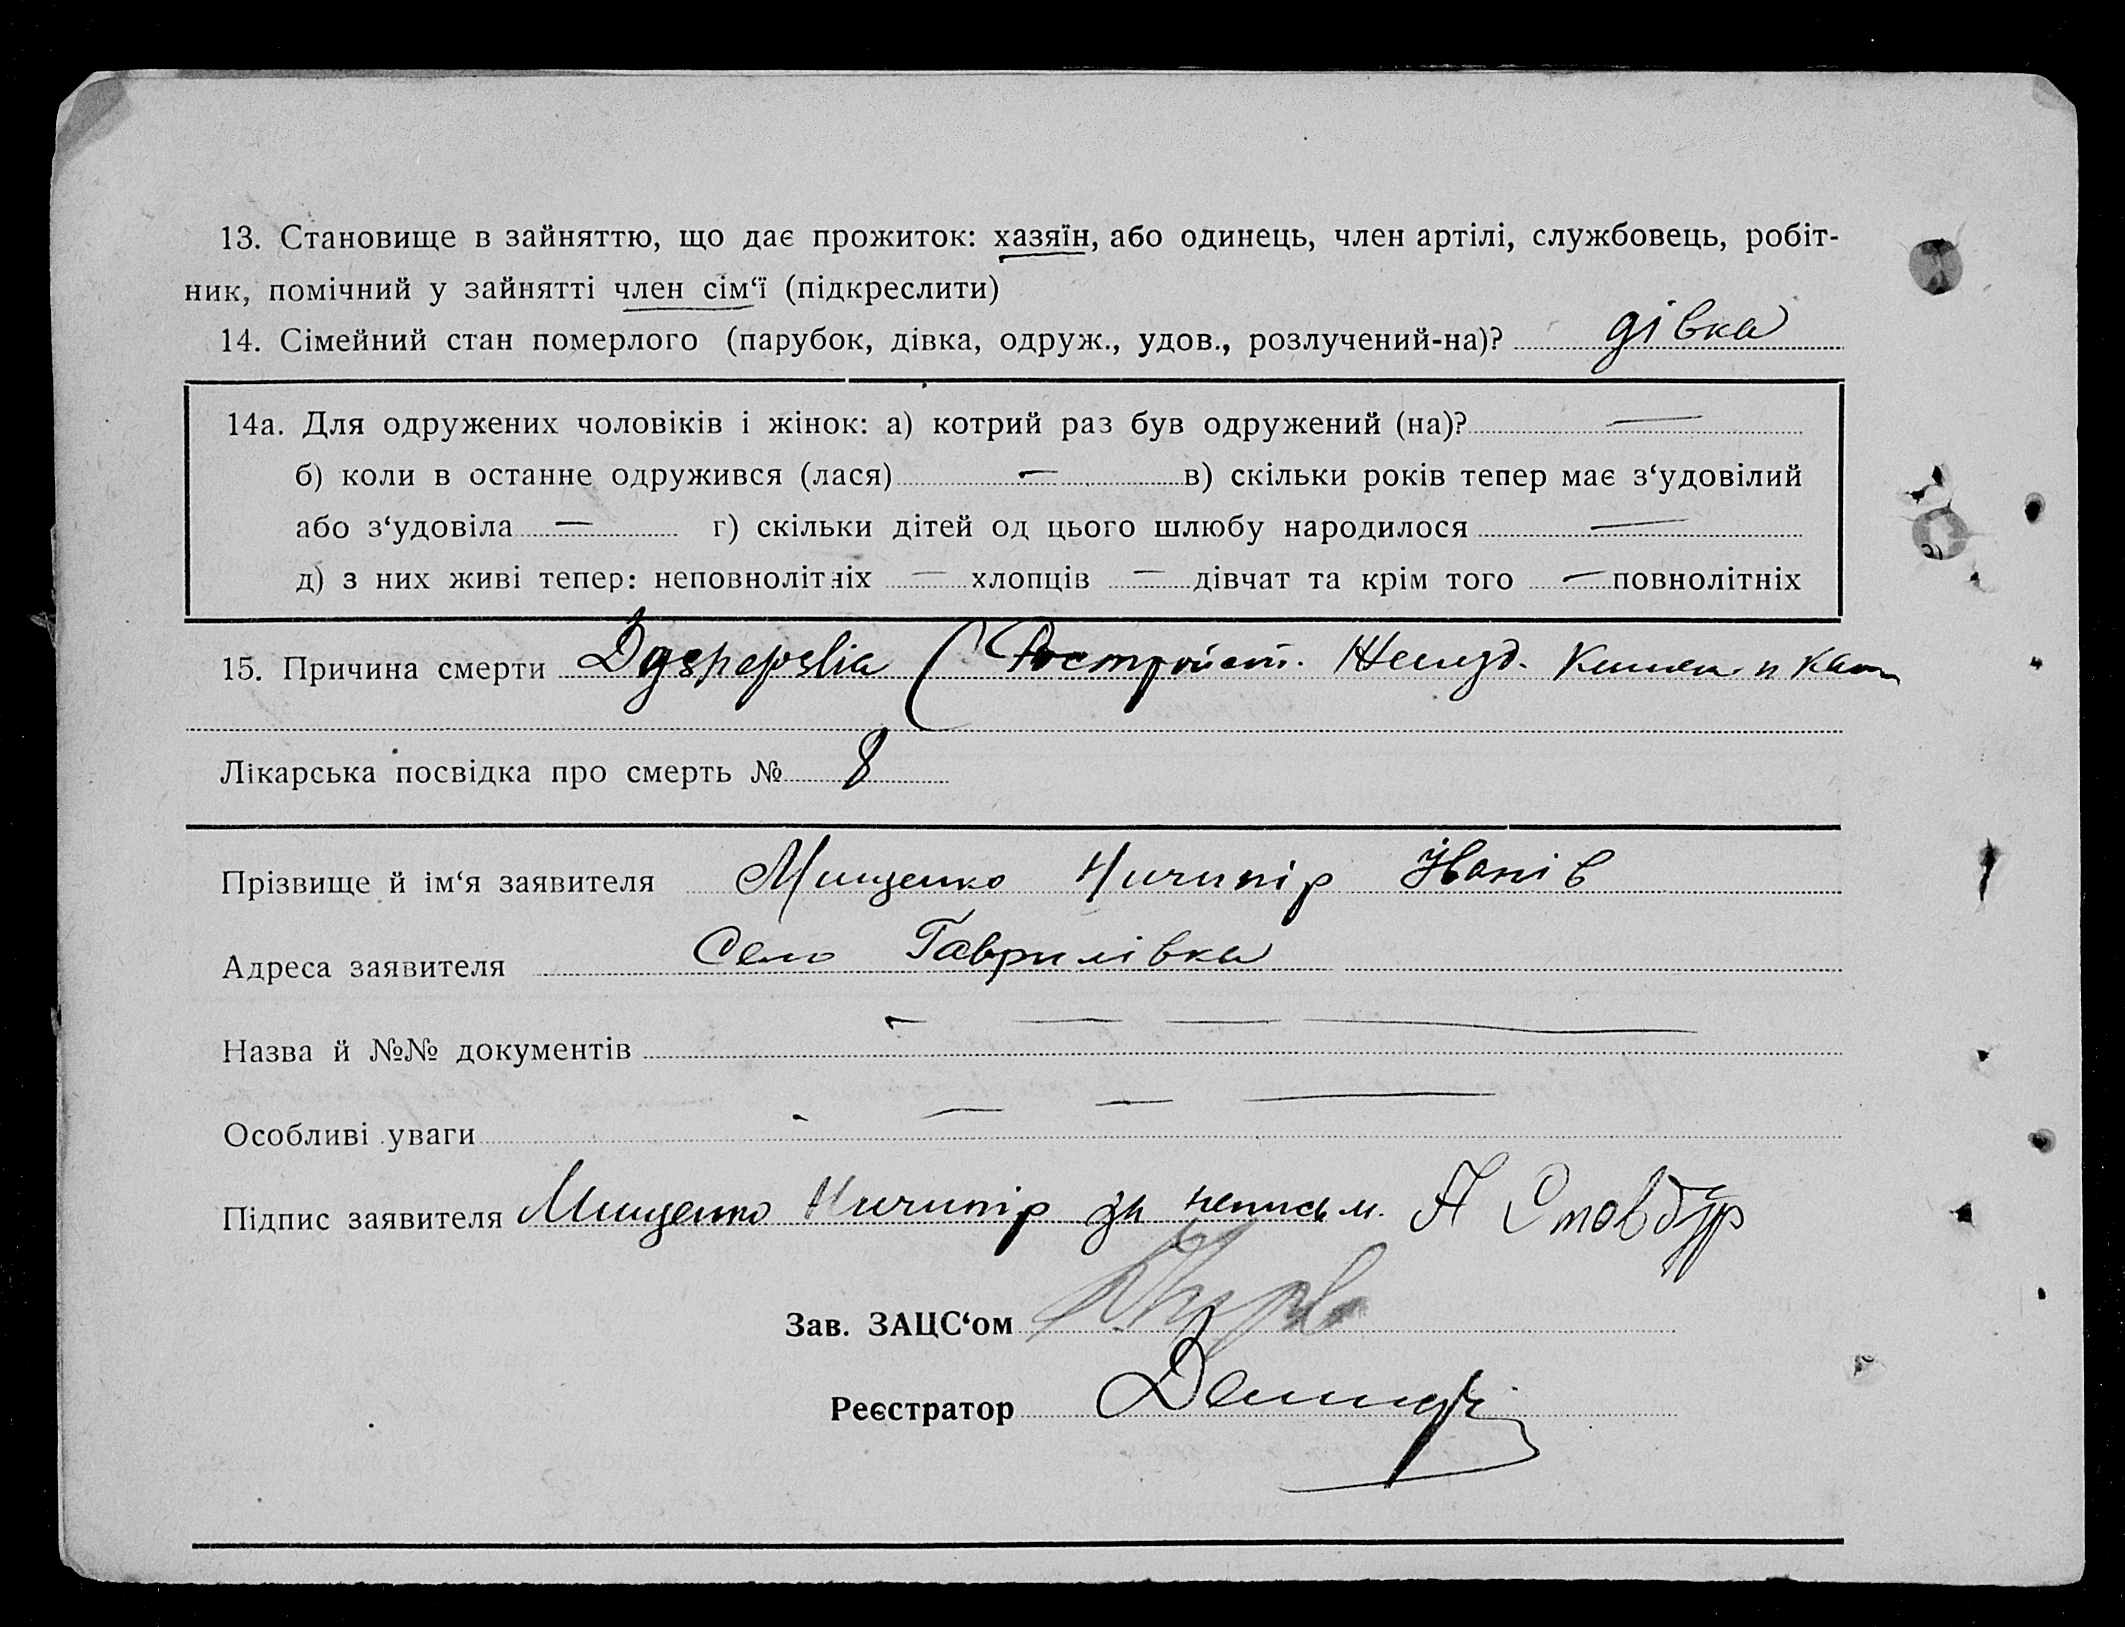 13. Становище в зайняттю, що дає прожиток: хазяїн, або одинець, член артілі, службовець, робіт-
ник, помічний у зайнятті член сім‘ї (підкреслити)
14. Сімейний стан померлого (парубок, дівка, одруж., удов., розлучений-на)? дівка
14а. Для одружених чоловіків і жінок: а) котрий раз був одружений (на)? —
б) коли в останне одружився (лася) — в) скільки років тепер має з‘удовілий
або з‘удовіла — г) скільки дітей од цього шлюбу народилося —
д) з них живі тепер: неповнолітніх — хлопців — дівчат та крім того — повнолітніх
15. Причина смерти Dyspepsia ( Ростройст. Желуд. Кишеч. и
Лікарська посвідка про смерть № 8
Прізвище й ім‘я заявителя Мищенко Ничипір Іванів
Адреса заявителя Село Гаврилівка
Назва й №№ документів — — — —
Особливі уваги - — — —
Підпис заявителя Мищенко Ничипір за неписьм. А Стовбур
Зав. ЗАЦС‘ом
Реєстратор